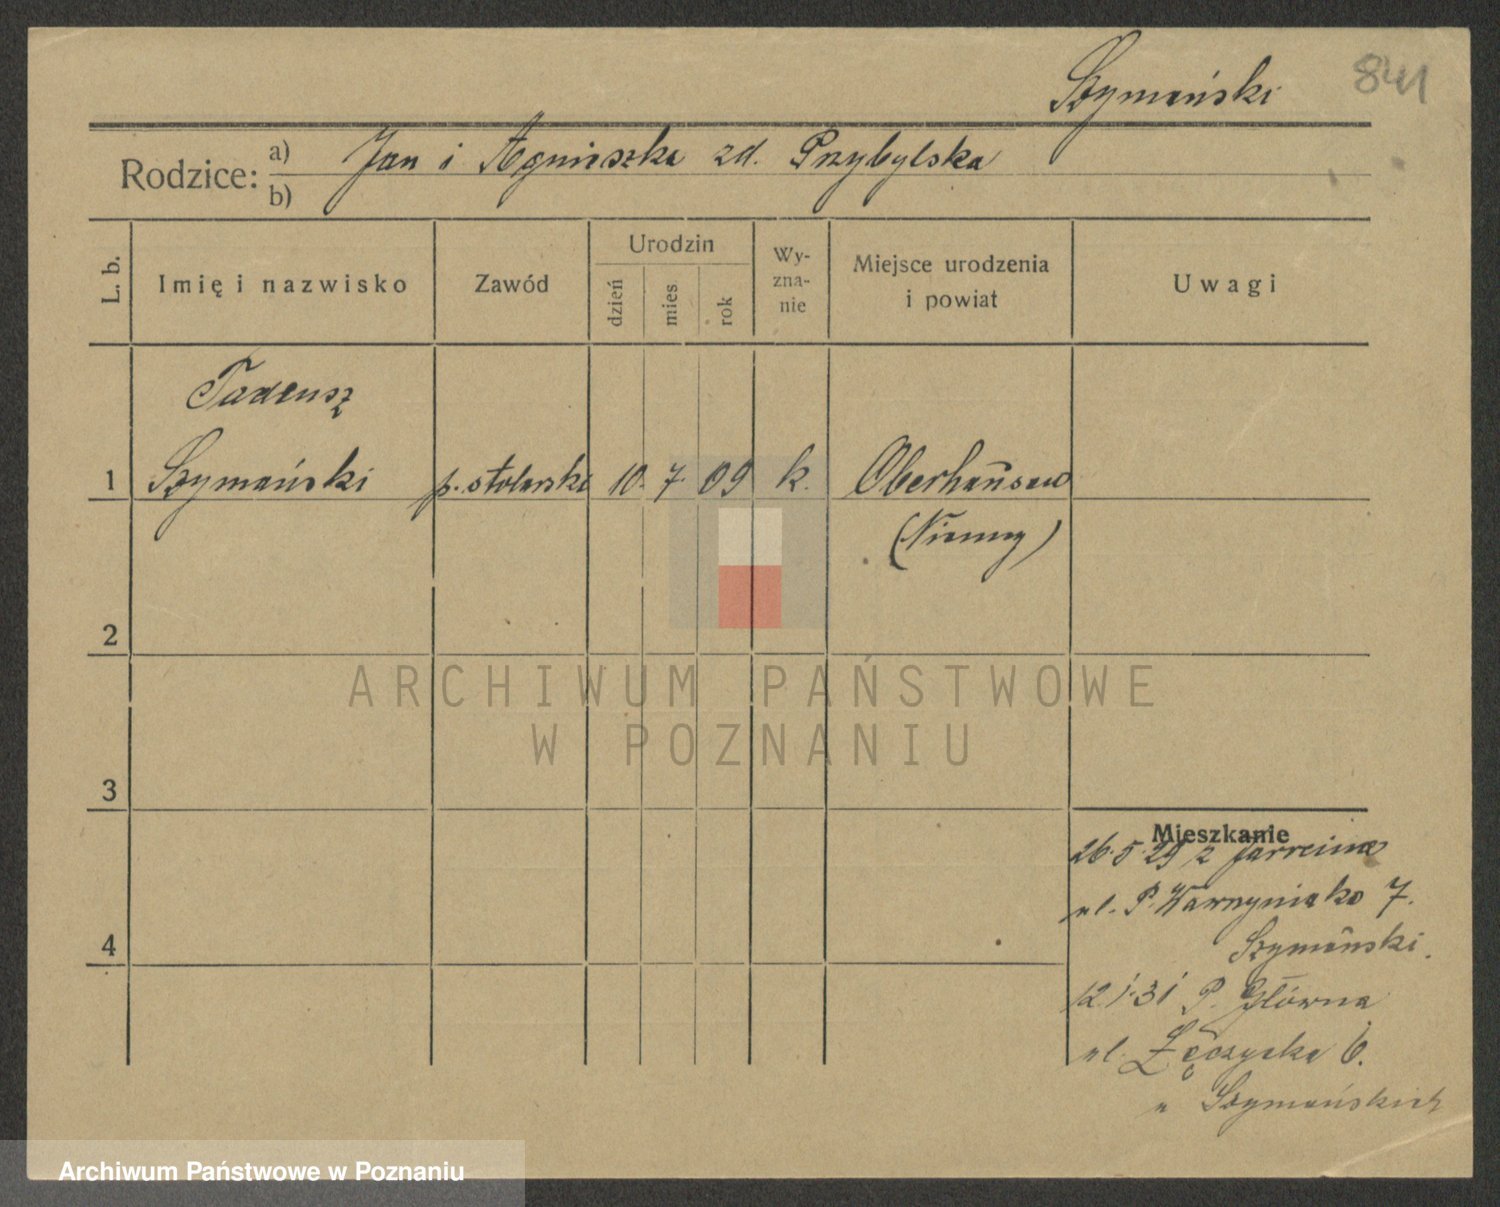 Szymański
841
Rodzice: a) Jan i Agnieszka zd. Przybylska
b)
L. b.
Imię i nazwisko
Zawód
Urodzin
dzień
mies
rok
Wy-
zna-
nie
Miejsce urodzenia
i powiat
Uwagi
Tadeusz
1 Szymański p. stolarski 10. 7. 09 k. Oberhausen
(Niemcy)
2
ARCHIWUM PAŃSTWOWE
W POZNANIU
3
Mieszkanie
26.5.29 z
ul. P. Wawrzyniaka 7.
Szymański.
4
12.1.31 P. Główna
ul. Łęczycka 6.
u Szymańskich
Archiwum Państwowe w Poznaniu